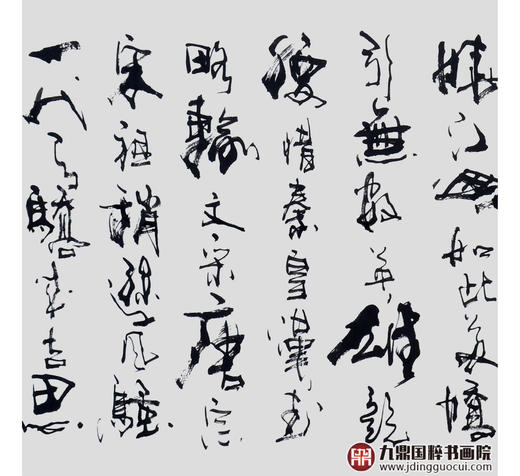 娆江山如此多嬌
引無数英雄競
腰惜秦皇漢武
略輸文采唐宗
宋祖稍遜风騷
一代天驕成吉思
九鼎国粹书画院
www.jdingguocui.com